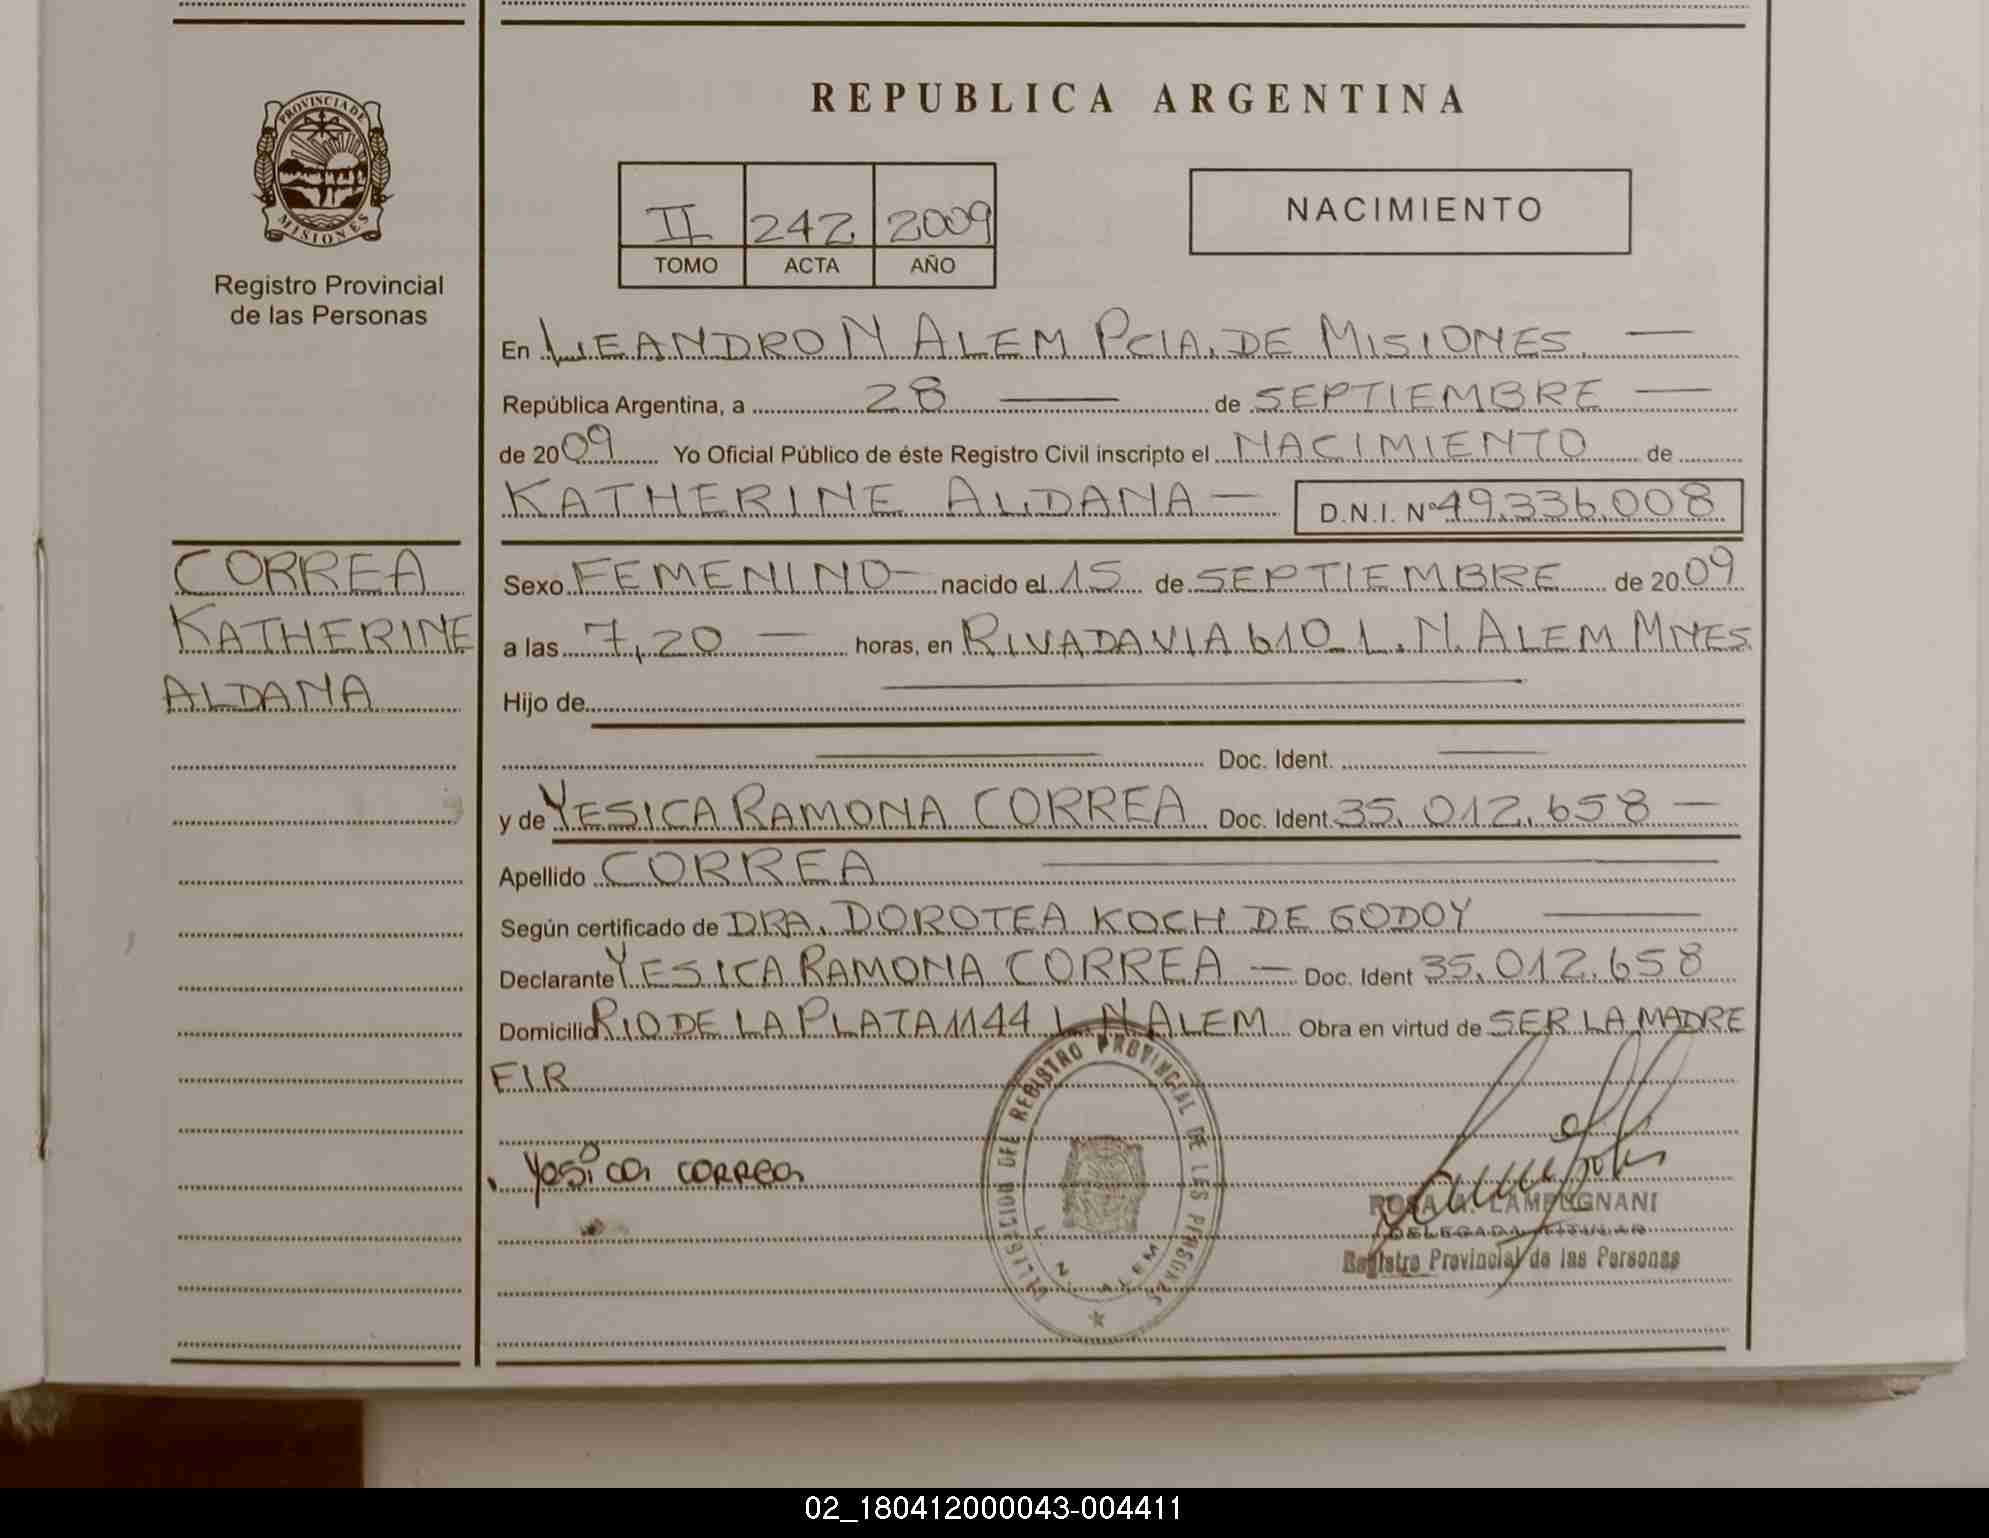 PROVINCIA DE
MISIONES
Registro Provincial
de las Personas
CORREA
KATHERINE
ALDANA
REPUBLICA ARGENTINA
II 242 2009
TOMO ACTA AÑO
NACIMIENTO
En LEANDRO N ALEM PCIA. DE MISIONES.
República Argentina, a 28 de SEPTIEMBRE
de 2009 Yo Oficial Público de éste Registro Civil inscripto el NACIMIENTO de
KATHERINE ALDANA D.N.I. Nº 49.336.008
Sexo FEMENINO nacido el 15 de SEPTIEMBRE de 2009
a las 7,20 horas, en RIVADAVIA 610 L.N. ALEM MNES.
Hijo de
Doc. Ident.
y de YESICA RAMONA CORREA Doc. Ident. 35.012.658
Apellido CORREA
Según certificado de DRA. DOROTEA KOCH DE GODOY
Declarante YESICA RAMONA CORREA Doc. Ident 35.012.658
Domicilio RIO DE LA PLATA 1144 L.N ALEM Obra en virtud de SER LA MADRE
FIR
Yesica correa
DELEGACION DEL REGISTRO PROVINCIAL DE LAS PERSONAS
L. N. ALEM
ROSA A. LAMPUGNANI
DELEGADA TITULAR
Registro Provincial de las Personas
02_180412000043-004411